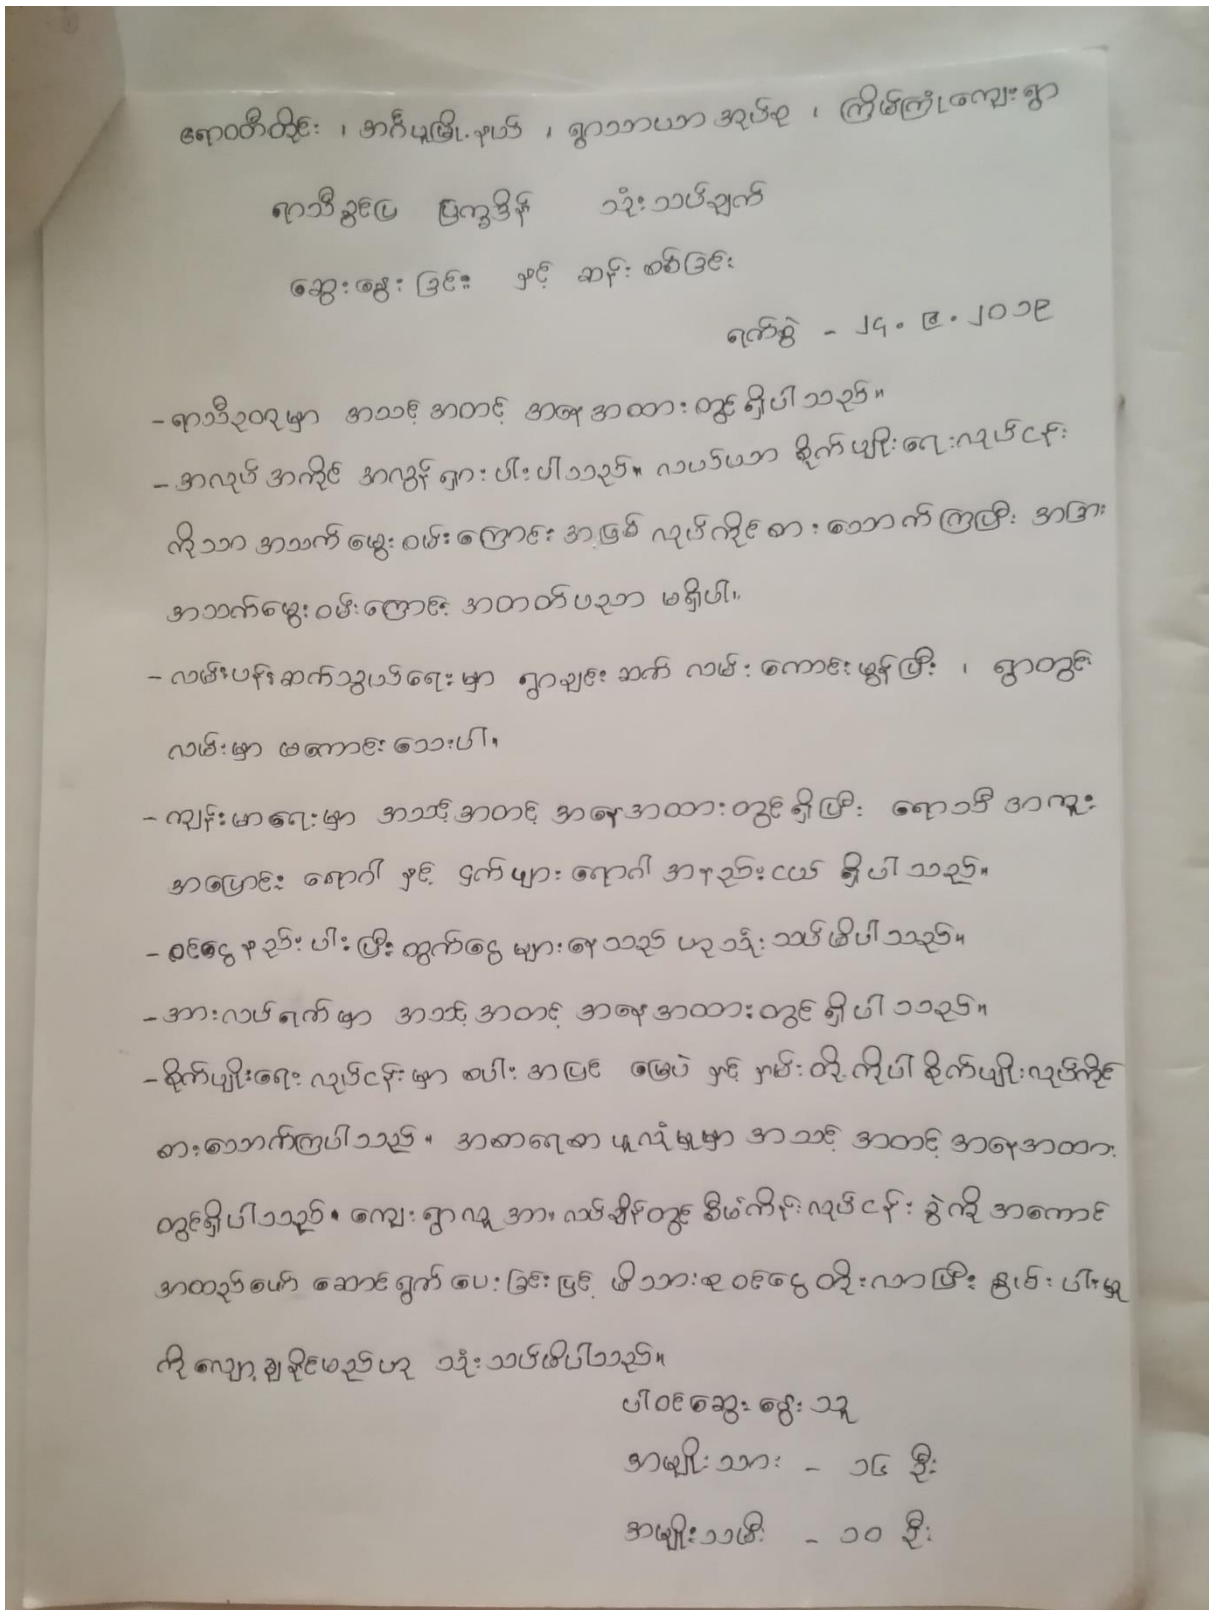 ဧရာဝတီတိုင်း ၊ အင်္ဂပူမြို့နယ် ၊ ရွာသာယာအုပ်စု ၊ ကြိမ်ကြုံကျေးရွာ
ရာသီခွင်ပြ ပြက္ခဒိန် သုံးသပ်ချက်
ဆွေးနွေးခြင်း နှင့် ဆန်းစစ်ခြင်း
ရက်စွဲ - ၂၄.၉.၂၀၁၉
- ရာသီဥတုမှာ အသင့်အတင့် အနေအထားတွင်ရှိပါသည်။
- အလုပ်အကိုင် အလွန်ရှားပါးပါသည်။ လယ်ယာ စိုက်ပျိုးရေးလုပ်ငန်း
ကိုသာ အသက်မွေးဝမ်းကြောင်းအဖြစ် လုပ်ကိုင်စားသောက်ကြပြီး အခြား
အသက်မွေးဝမ်းကြောင်း အတတ်ပညာ မရှိပါ။
- လမ်းပန်းဆက်သွယ်ရေးမှာ ရွာချင်းဆက် လမ်းကောင်းမွန်ပြီး ၊ ရွာတွင်း
လမ်းမှာ မကောင်းသေးပါ။
- ကျန်းမာရေးမှာ အသင့်အတင့် အနေအထားတွင်ရှိပြီး ရာသီအကူး
အပြောင်း ရောဂါ နှင့် ငှက်ဖျားရောဂါ အနည်းငယ် ရှိပါသည်။
- ဝင်ငွေနည်းပါးပြီး ထွက်ငွေများနေသည် ဟုသုံးသပ်မိပါသည်။
- အားလပ်ရက်မှာ အသင့်အတင့် အနေအထားတွင်ရှိပါသည်။
- စိုက်ပျိုးရေးလုပ်ငန်းမှာ စပါးအပြင် မြေပဲ နှင့် နှမ်းတို့ကိုပါ စိုက်ပျိုးလုပ်ကိုင်
စားသောက်ကြပါသည်။ အစာရေစာ ဖူလုံမှုမှာ အသင့်အတင့်အနေအထား
တွင်ရှိပါသည်။ ကျေးရွာလူ အားလပ်ချိန်တွင် စီမံကိန်းလုပ်ငန်းခွဲကို အကောင်
အထည်ဖော် ဆောင်ရွက်ပေးခြင်းဖြင့် မိသားစုဝင်ငွေတိုးလာပြီး နွမ်းပါးမှု
ကို လျော့ချနိုင်မည်ဟု သုံးသပ်မိပါသည်။
ပါဝင်ဆွေးနွေးသူ
အမျိုးသား - ၁၆ ဦး
အမျိုးသမီး - ၁၀ ဦး